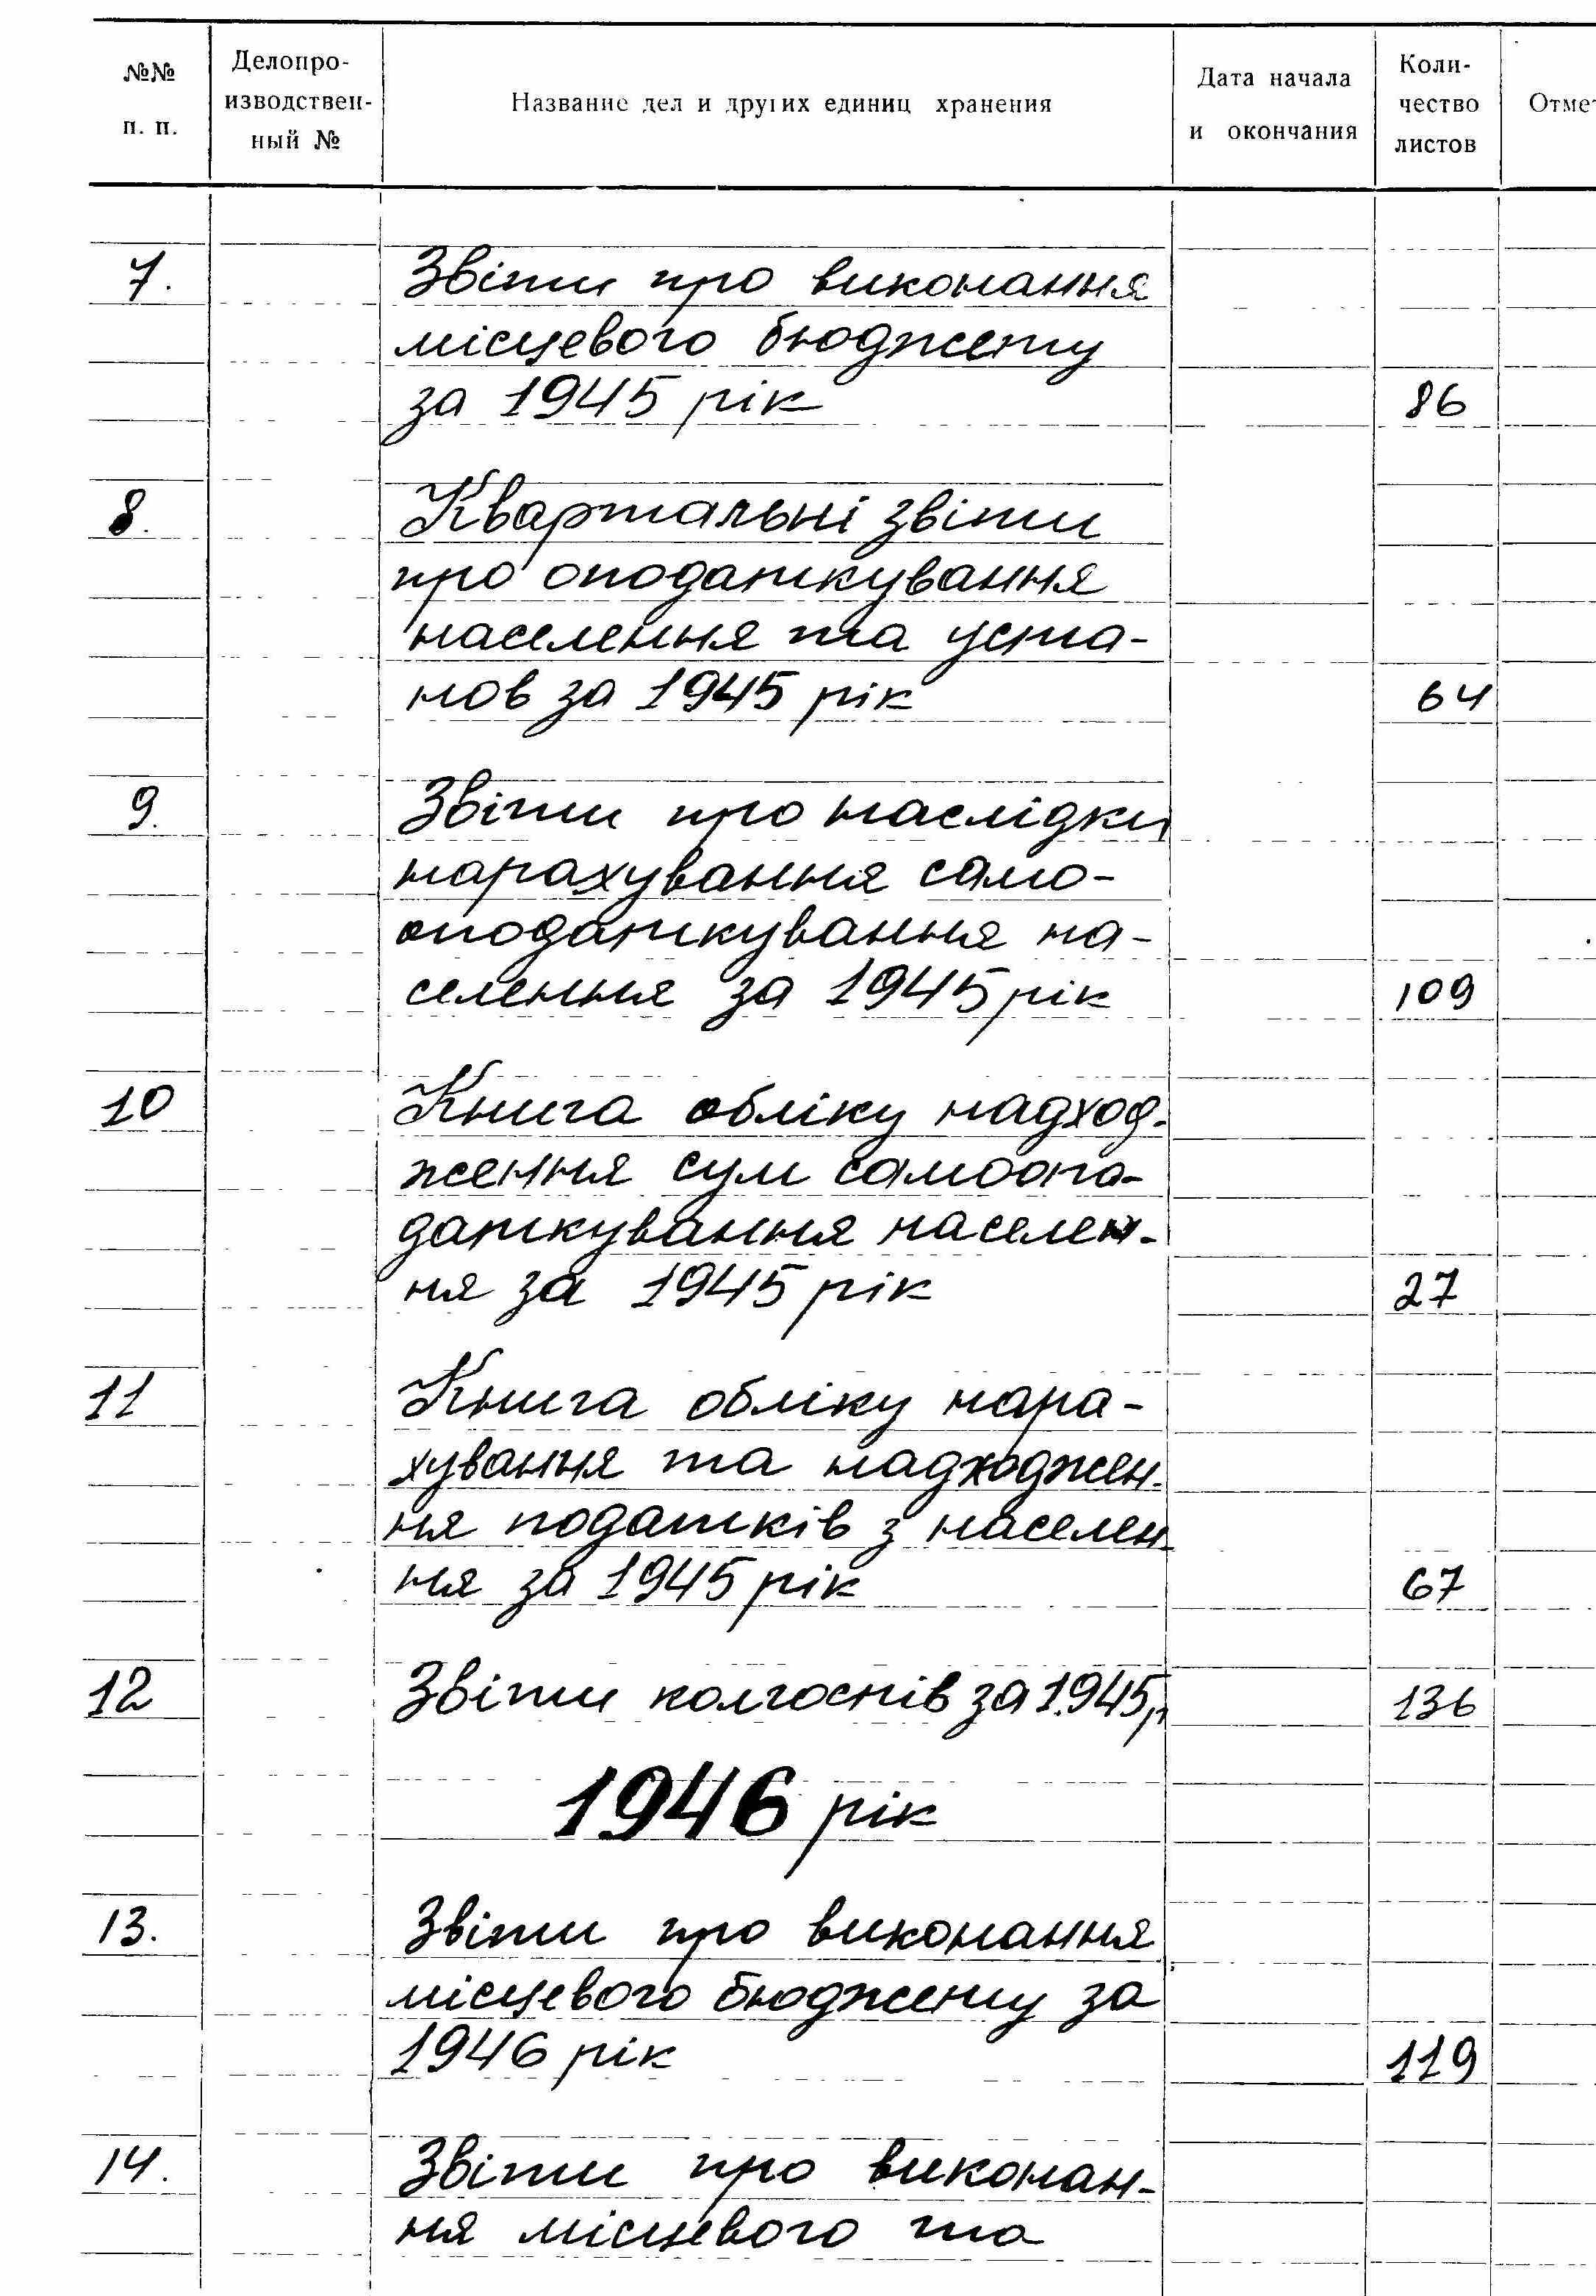 №№ п. п.
Делопро-
изводствен-
ный №
Название дел и других единиц хранения
Дата начала
и окончания
Коли-
чество
листов
Отмет
7. Звіти про виконання
місцевого бюджету
за 1945 рік 86
8. Квартальні звіти
про оподаткування
населення та уста-
нов за 1945 рік 64
9. Звіти про наслідки
нарахування само-
оподаткування на-
селення за 1945 рік 109
10 Книга обліку надход-
ження сум самоопо-
даткування населен-
ня за 1945 рік 27
11 Книга обліку нара-
хування та надходжен-
ня податків з населен-
ня за 1945 рік 67
12 Звіти колгоспів за 1945 р 136
1946 рік
13. Звіти про виконання
місцевого бюджету за
1946 рік 119
14. Звіти про виконан-
ня місцевого та